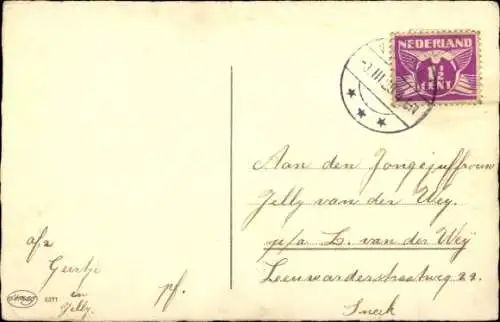 NEDERLAND
1½
CENT
Aan den Jongejuffrouw
Jelly van der Wey.
p/a L. van der Wey
Leeuwarderstraatweg 22.
Sneek
afz
Geertje
in
Jelly.
pf.